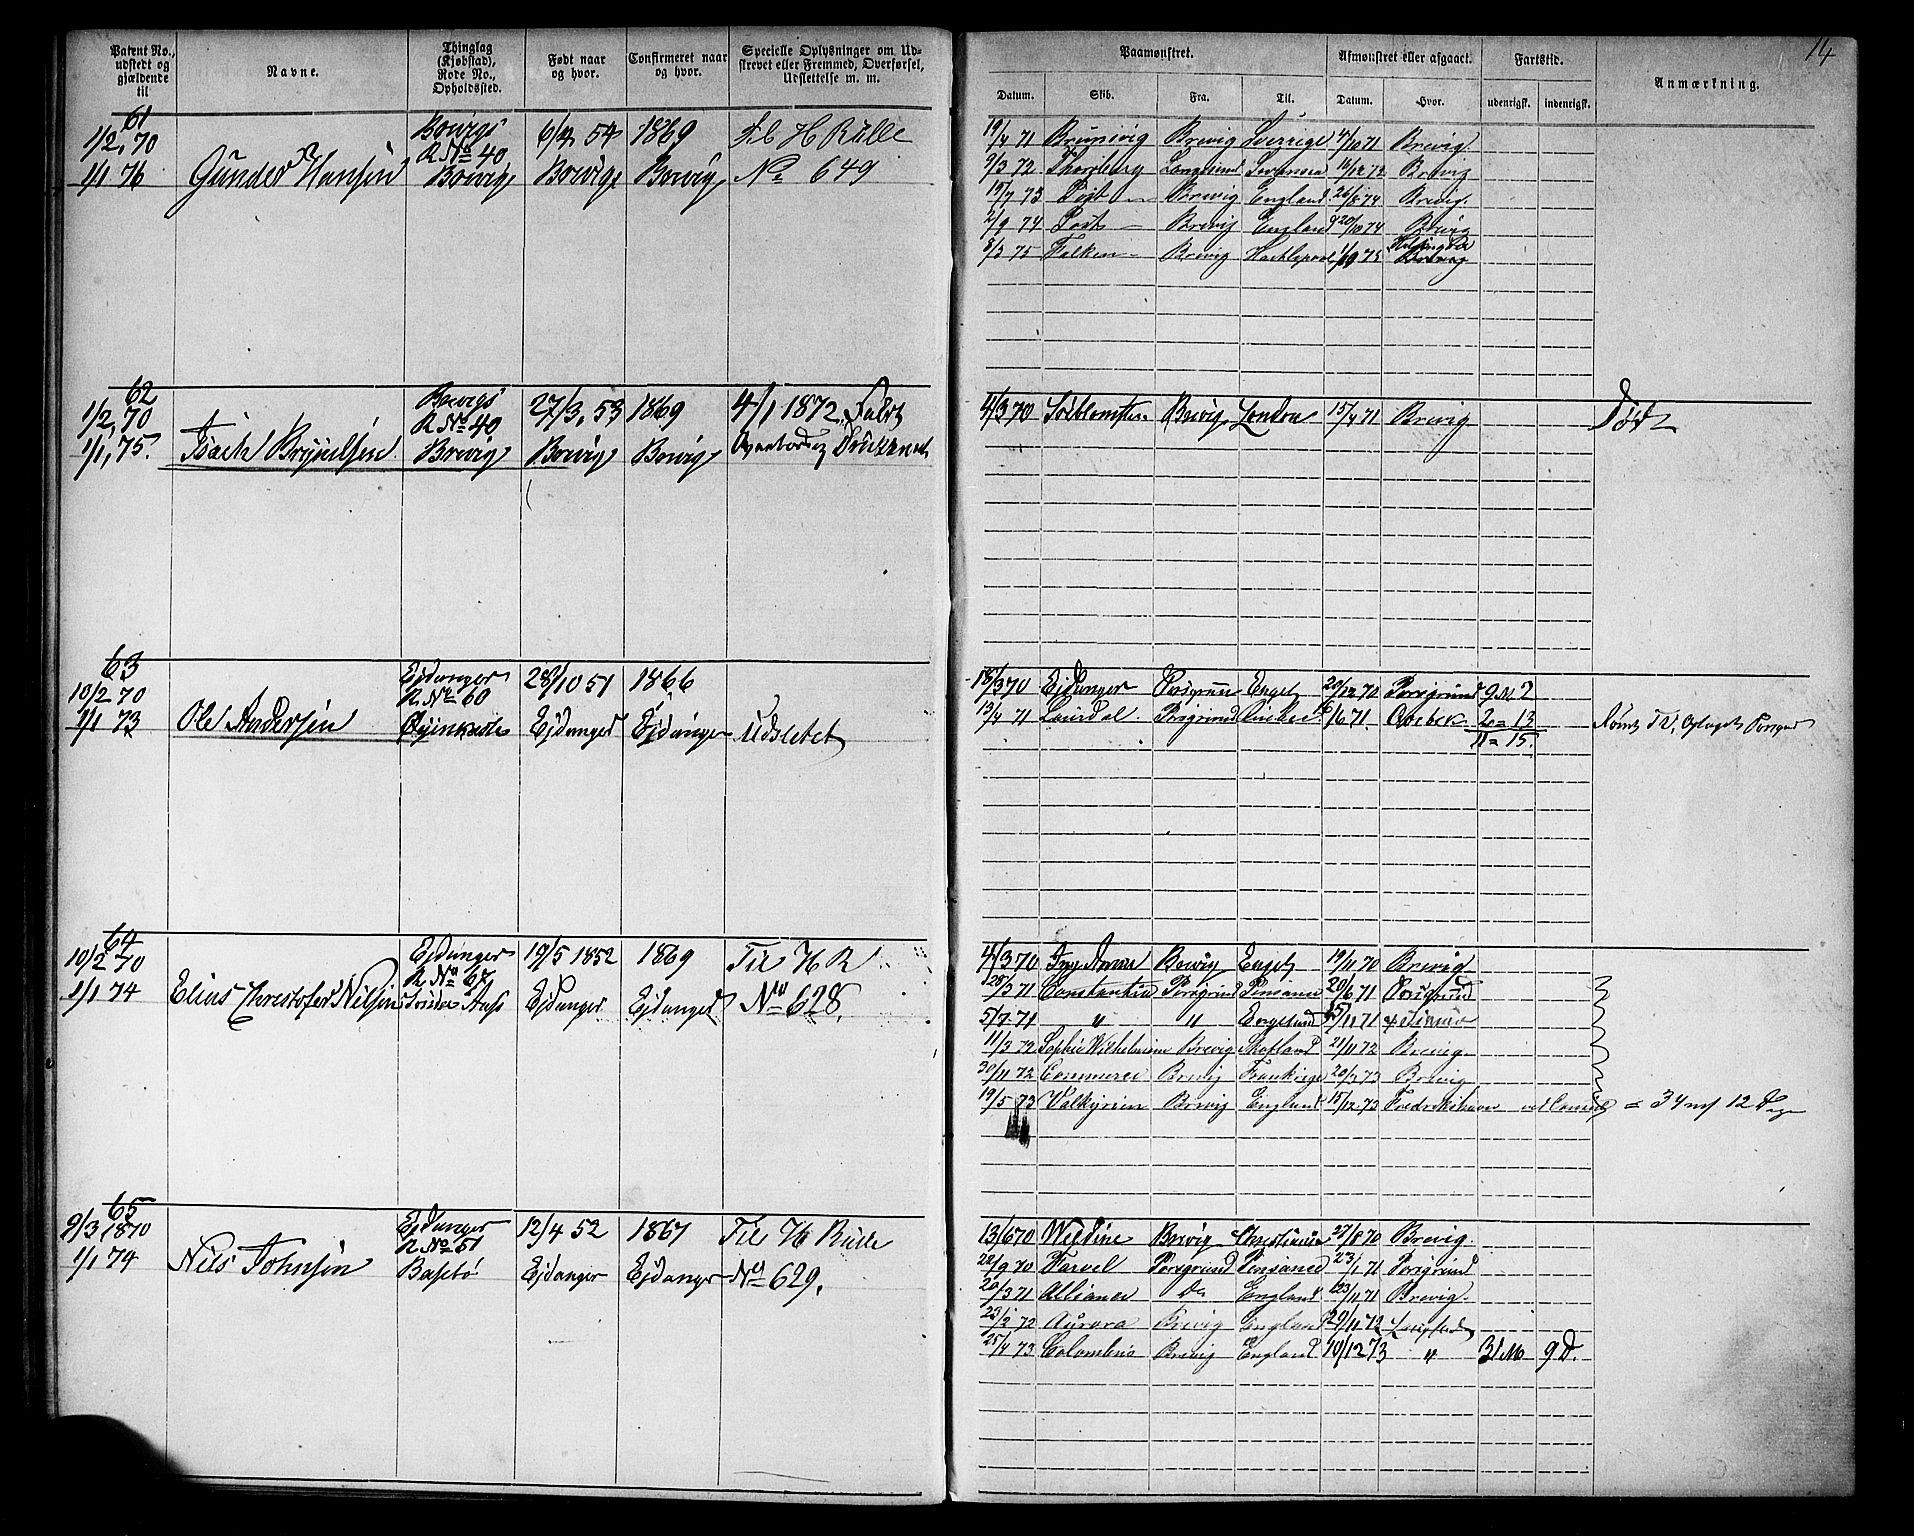 14
Patent No., udstedt og gjældende til
Navne.
Thinglag (Kjøbstad), Rode No., Opholdssted.
Født naar og hvor.
Confirmeret naar og hvor.
Specielle Oplysninger om Udskrevet eller Fremmed, Overførsel, Udslettelse m. m.
Paamønstret.
Afmønstret eller afgaaet.
Fartstid.
Anmærkning.
Datum. Skib. Fra. Til. Datum. Hvor. udenrigsk. indenrigsk.
61
1/2, 70
1/1 76
Gunder Hansen
Brevigs
R No 40
Brevig
6/4 54
Brevig
1869
Brevig
H Rulle
No 649
19/4 71 Brunvig Brevig Sverige 4/10 71 Brevig
9/3 72 Brevig
19/7 73 Post Brevig England 26/8 74 Brevig.
2/9 74 Post Brevig England 20/10 74 Brevig
8/3 75 Falken Brevig Hartlepool 1/10 75 Brevig
62
1/2, 70
1/1, 75.
Isach Brynilsen
Brevigs
R No 40
Brevig
27/3, 53
Brevig
1869
Brevig
4/1 1872
4/3 70 Brevig London 15/4 71 Brevig
Død
63
10/2 70
1/1 73
Ole Andersen
Ejdanger
R No 60
28/10 51
Ejdanger
1866
Ejdanger
Udslettet
18/3 70 Ejdanger Porsgrun Engel 20/12 70 Porsgrund 9 M 2
13/4 71 Laurdal Porsgrund 71 Qvebek 2 = 13
11 = 15.
Porsgrund
64
10/2 70
1/1 74
Elias Christofer Nilsen
Ejdanger
R No 67
19/5 1852
Ejdanger
1869
Ejdanger
Til H R
No 628.
4/3 70 Brevig Engel 19/11 70 Brevig
28/3 71 Constantia Porsgrund Pensance 20/6 71 Porsgrund
5/7 71 " " England 71
11/3 72 Sophie Wilhelmine Brevig Skotland 21/11 72 Brevig
30/11 72 Commerce Brevig Frankrige 20/3 73 Brevig
19/5 73 Valkyrien Brevig England 15/12 73 Fredrikshavn = 34 m/ 12 Dage
65
9/3 1870
1/1 74
Nils Johnsen
Ejdanger
R No 51
Basebo
12/4 52
Ejdanger
1867
Ejdanger
Til H Rulle
No 629.
13/6 70 Brevig Christiania 27/8 70 Brevig.
22/9 70 Farvel Porsgrund Pensance 23/1 71 Porsgrund
20/3 71 Alliance Do England 23/11 71 Brevig
23/2 72 Aurora Brevig England 29/11 72
25/4 73 Colombus Brevig England 10/12 73 " 31 M 9 D.